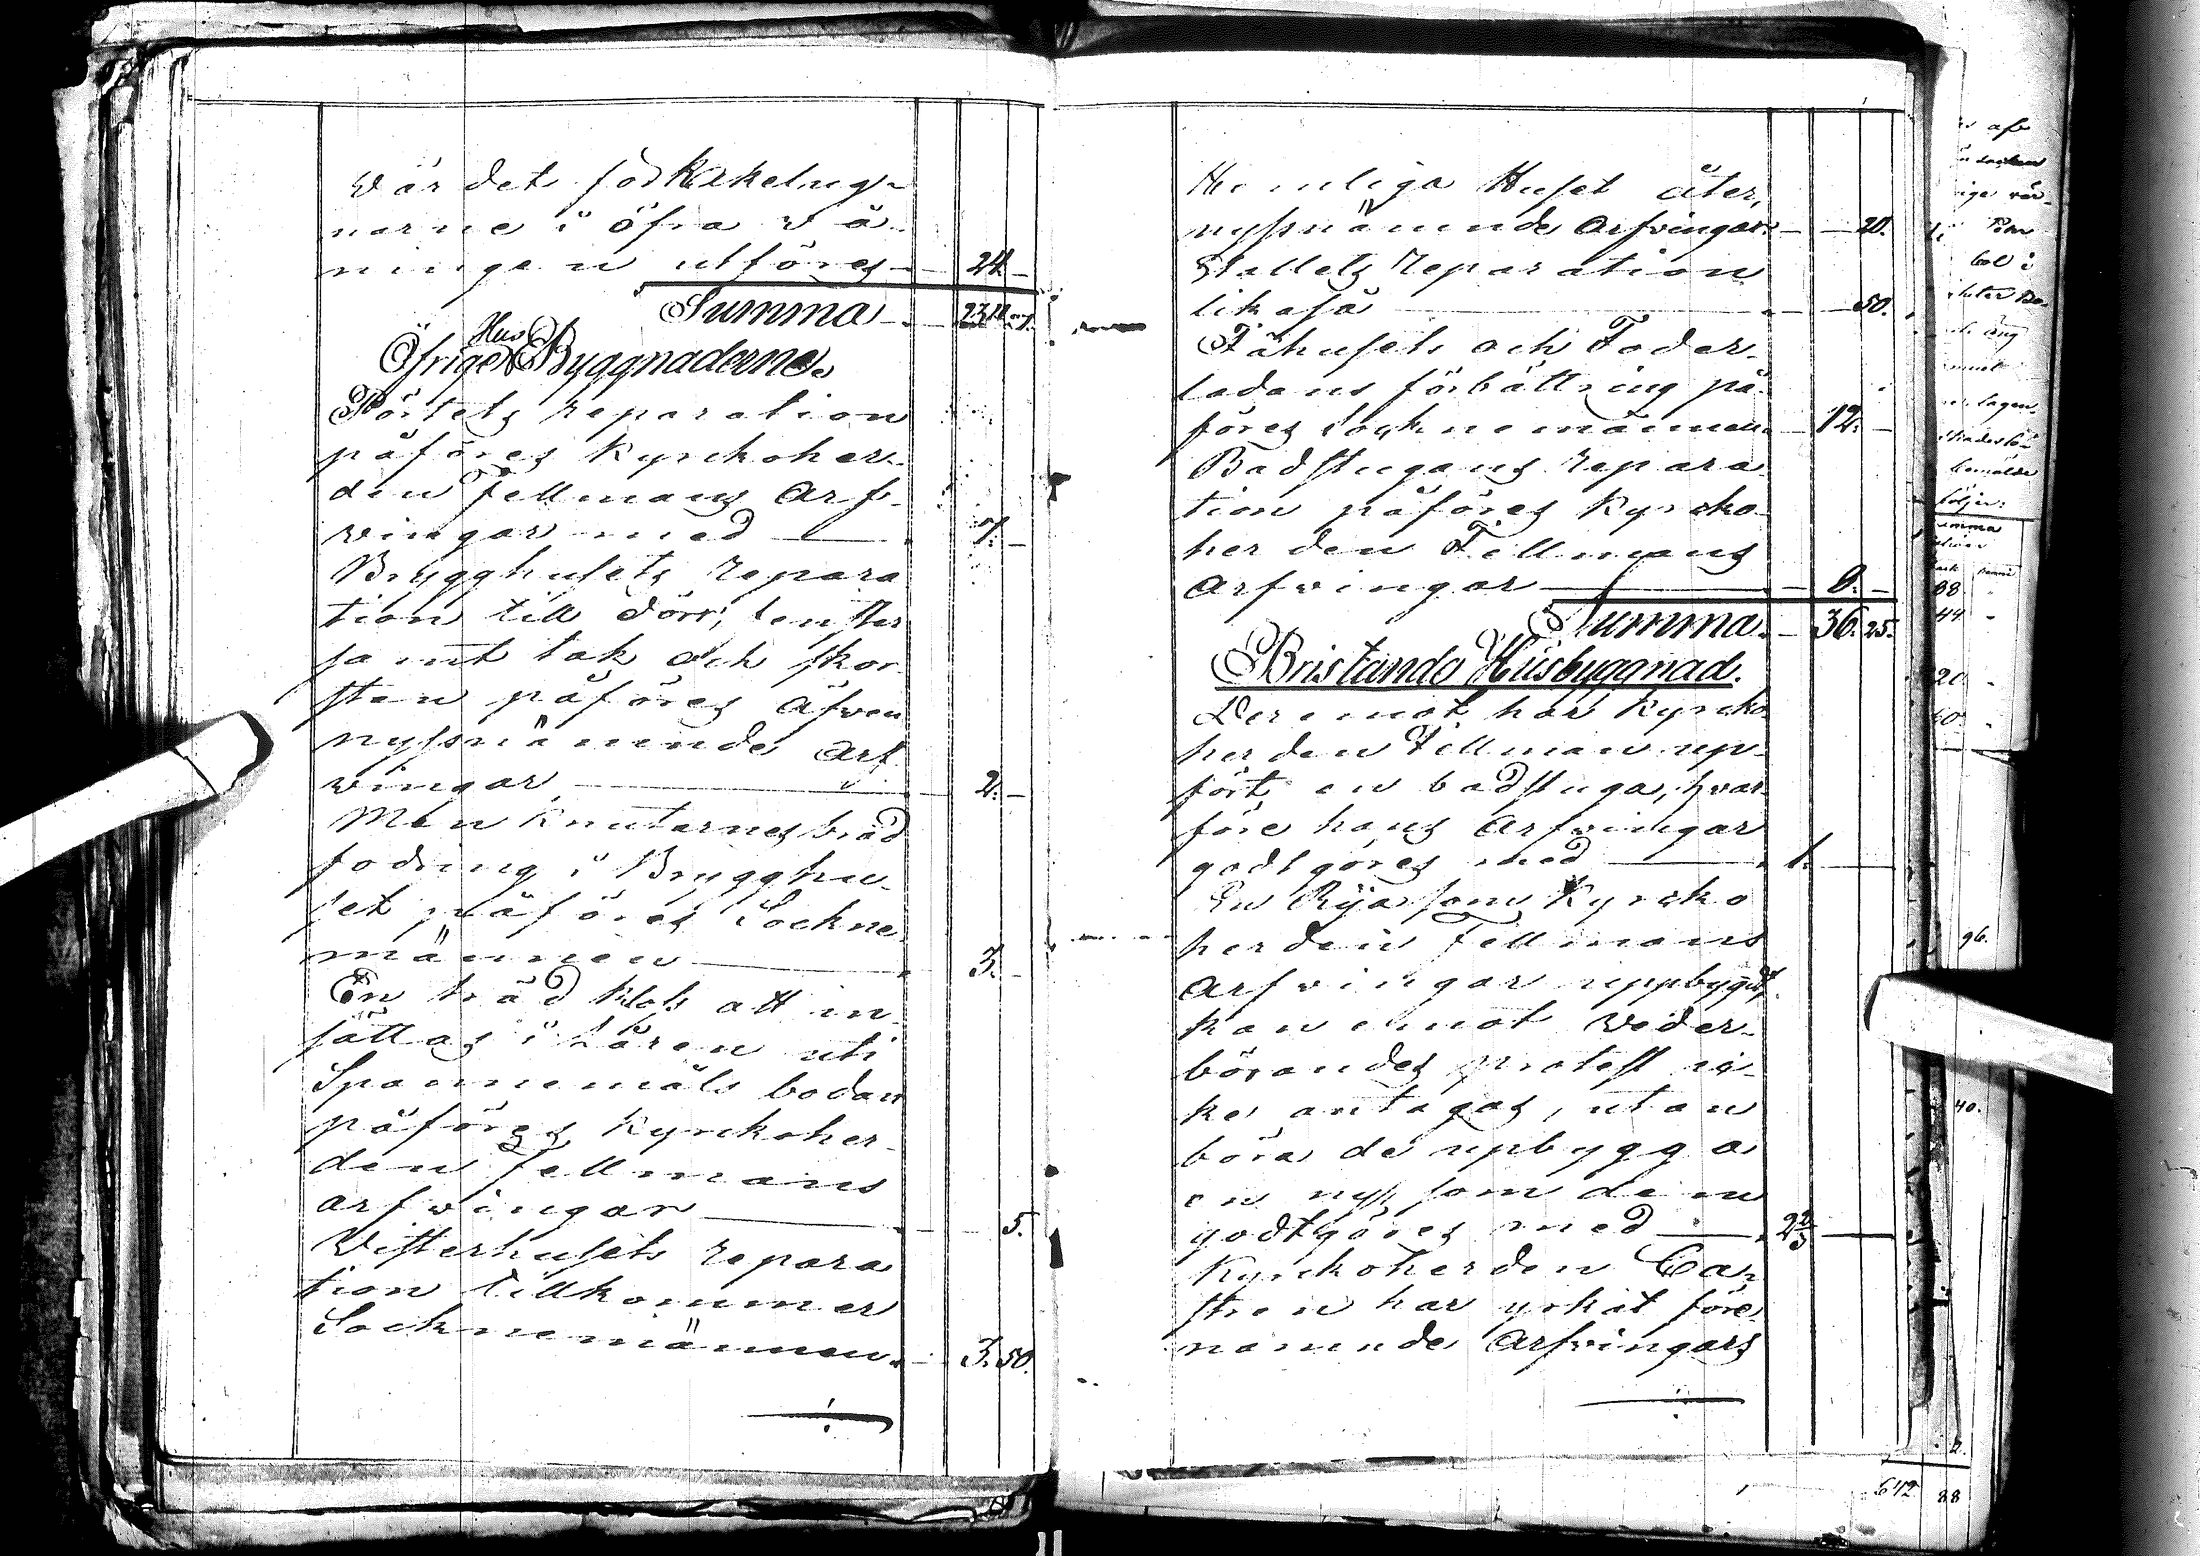 Värdet för Kakelug-
narne i öfra vå-
ningen utföres 24.
Summa
Öfrige Hus Byggnaderne.
Pörtets reparation
påföres Kyrckoher-
den Fellmans Arf-
vingar med 7.
Brygghusets repara
tion till dörr, fenster
samt tak och skor
sten påföres äfven
nyssnämnde Arf
vingar 2.
Men Knutarnes bräd
fodring i Brygghu-
set påföres Sockne
männen 3.
En träd klots att in-
sättas i låren uti
Spannemåls bodan
påföres Kyrckoher-
den Fellmans
arfvingar 5.
Visterhusets repara
tion tillkommer
Socknemännen 3. 50.
Hemliga Huset åter,
nyssnämnde Arfvingar 20.
Stallets reparation
likaså 50.
Fähusets och Foder-
ladans förbättring på-
föres socknemännen 12.
Badstugans repara
tion påföres Kyrcko-
herden Fellmans
Arfvingar 8.
Summa 36. 25.
Bristande Husbyggnad.
Deremot har Kyrcko
herden Fellman up-
fört en badstuga, hvar-
före hans Arfvingar
godtgöres med 1.
En Ria som Kyrcko
herden Fellmans
Arfvingar uppbygdt,
kan emot veder-
börandes protest ic-
ke antagas, utan
böra de upbygga
en ny, som dem
godtgöres med 2 2/3
Kyrckoherden Ca-
stren har yrkat före
nämnde Arfvingars
96.
40.
2.
642 88